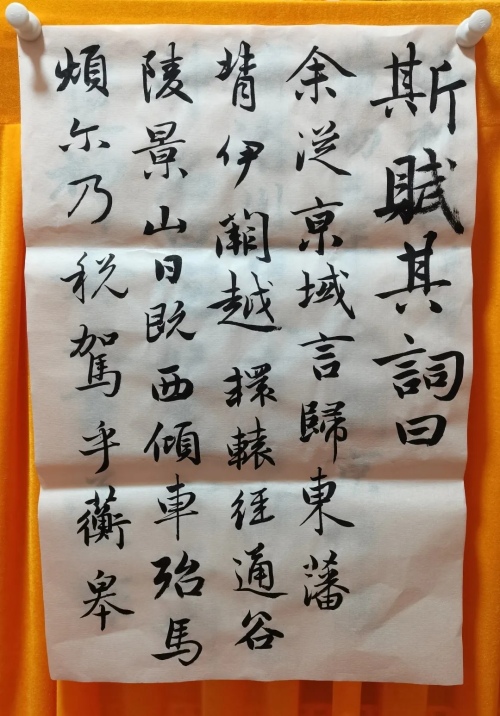 斯賦其詞曰
余從京域言歸東藩
背伊闕越轘轅經通谷
陵景山日既西傾車殆馬
煩尓乃税駕乎蘅皋